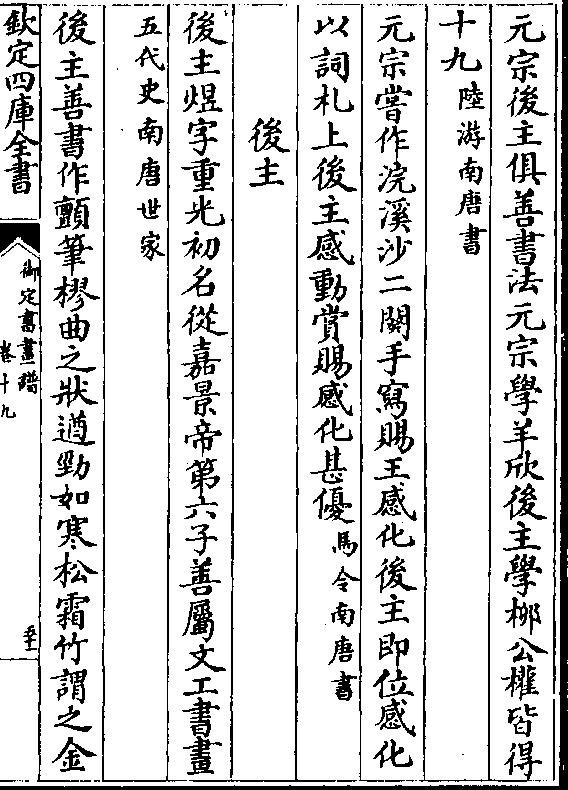 元宗後主俱善書法元宗學羊欣後主學栁公權皆得
十九 陸游南唐書
元宗嘗作浣溪沙二闋手寫賜王感化後主即位感化
以詞札上後主感動賞賜感化甚優 馬令南唐書
後主
後主煜字重光初名從嘉景帝第六子善屬文工書畫
五代史南唐世家
後主善書作顫筆樛曲之狀遒勁如寒松霜竹謂之金
欽定四庫全書
御定書畫譜
卷十九